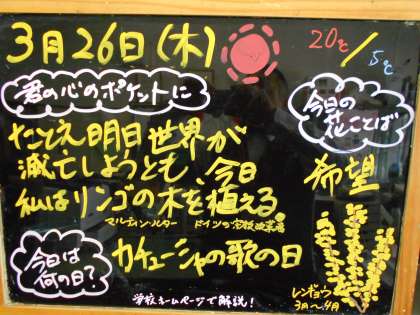 3月26日(木)
20℃/5℃
君の心のポケットに
たとえ明日世界が
滅亡しようとも、今日
私はリンゴの木を植える。
マルティン・ルター ドイツの宗教改革者
今日の
花ことば
希望
レンギョウ
3月〜4月
今日は
何の日?
カチューシャの歌の日
学校ホームページで解説!